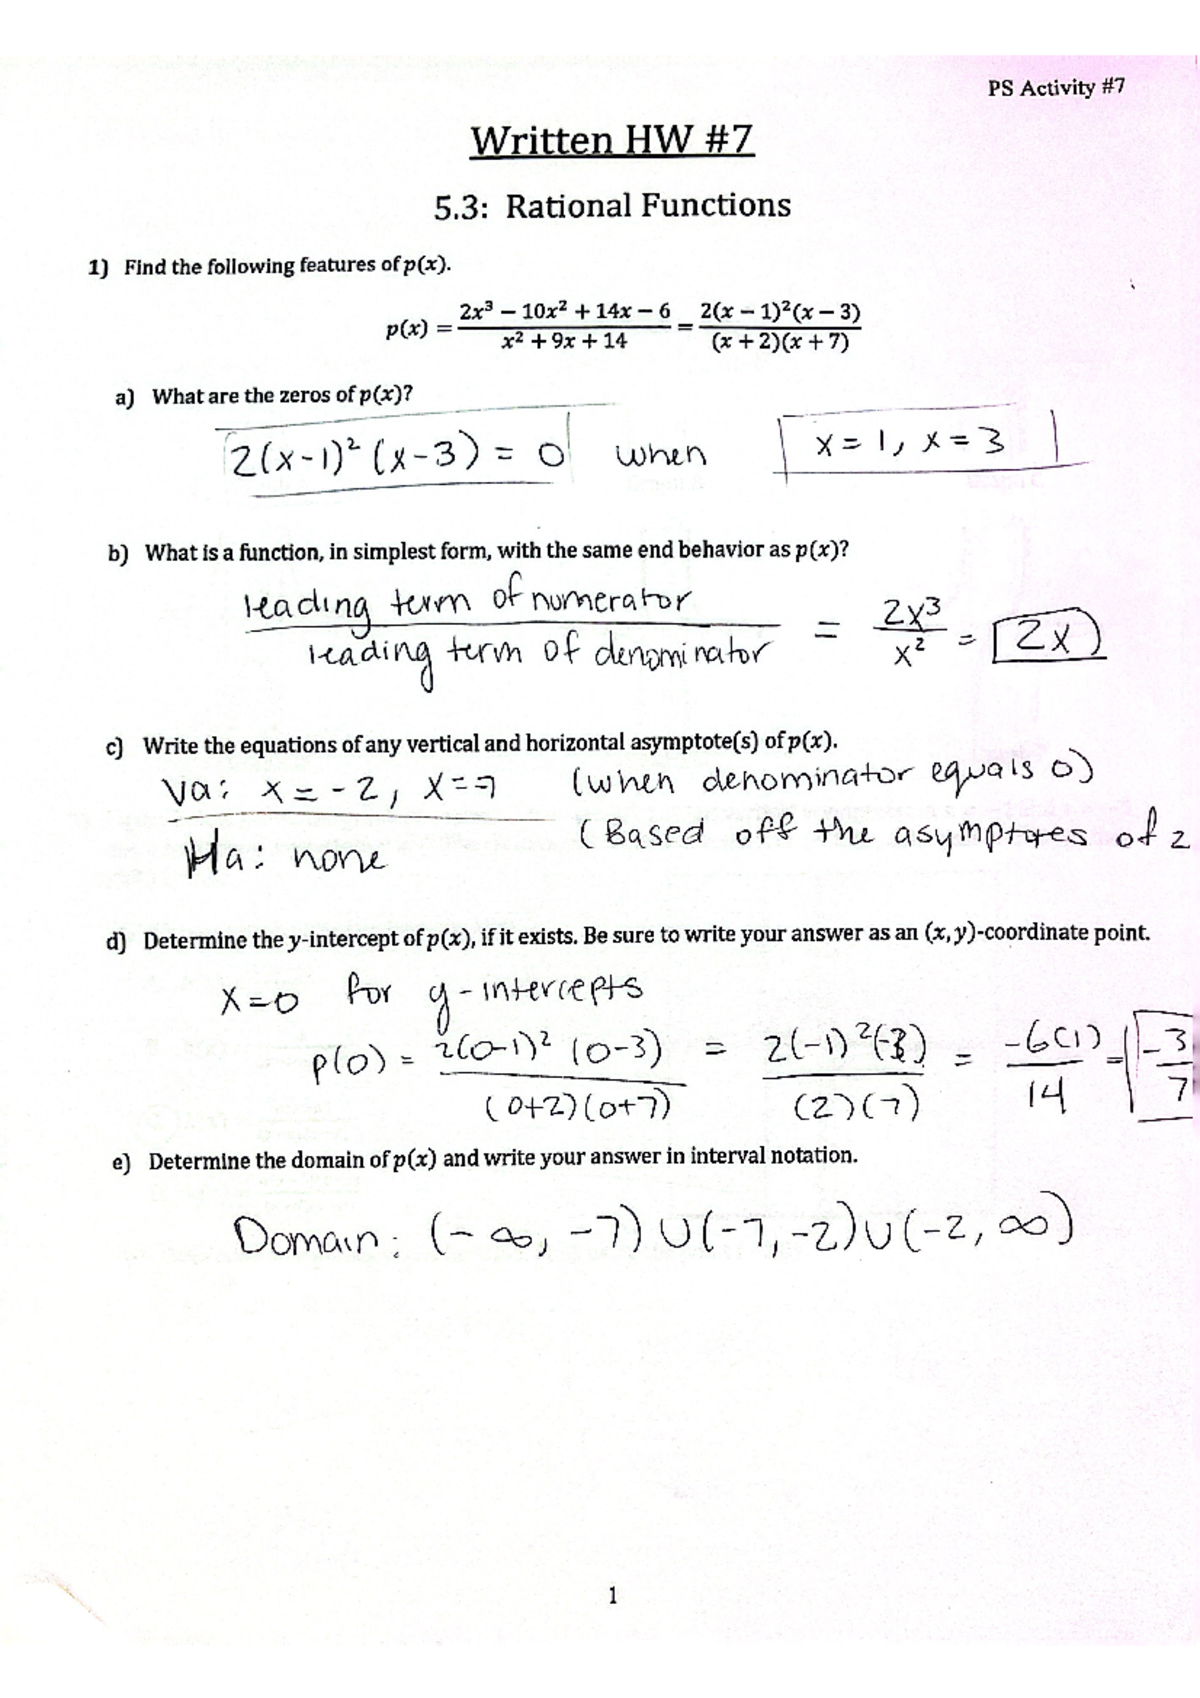 PS Activity #7
Written HW #7
5.3: Rational Functions
1) Find the following features of p(x).
p(x) = (2x³ − 10x² + 14x − 6)/(x² + 9x + 14) = (2(x − 1)²(x − 3))/((x + 2)(x + 7))
a) What are the zeros of p(x)?
2(x-1)² (x-3) = 0 when x = 1, x = 3
b) What is a function, in simplest form, with the same end behavior as p(x)?
leading term of numerator
leading term of denominator = 2x³/x² = 2x
c) Write the equations of any vertical and horizontal asymptote(s) of p(x).
Va: x = -2, x = -7 (when denominator equals 0)
Ha: none (Based off the asymptotes of 2
d) Determine the y-intercept of p(x), if it exists. Be sure to write your answer as an (x, y)-coordinate point.
x=0 for y-intercepts
p(0) = 2(0-1)² (0-3)/(0+2)(0+7) = 2(-1)²(-3)/(2)(7) = -6(1)/14 = -3/7
e) Determine the domain of p(x) and write your answer in interval notation.
Domain: (-∞, -7) ∪ (-7, -2) ∪ (-2, ∞)
1